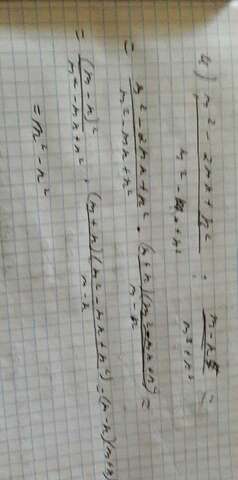 4) (m² - 2mn + n²)/(m² - mn + n²) : (m - n)/(m³ + n³) =
= (m² - 2mn + n²)/(m² - mn + n²) · ((m + n)(m² - mn + n²))/(m - n) =
= (m - n)²/(m² - mn + n²) · ((m + n)(m² - mn + n²))/(m - n) = (m - n)(m + n)
= m² - n²